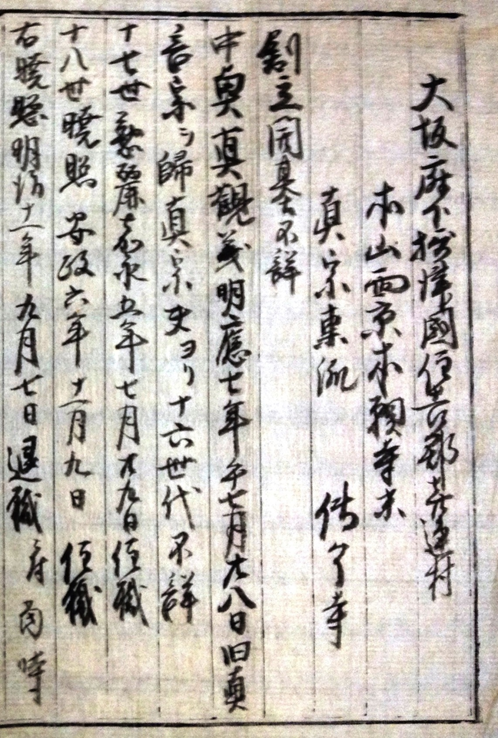 大坂府下摂津國住吉郡喜連村
本山西京本願寺末
真宗東派 傳了寺
創立開基不詳
中興真観義明應七年午七月廿八日旧真
言宗ヲ帰真宗史ヨリ十六世代不詳
十七世 嘉永五年七月廿九日住職
十八世暁照 安政六年十一月九日 住職
右暁照明治十一年九月七日退職